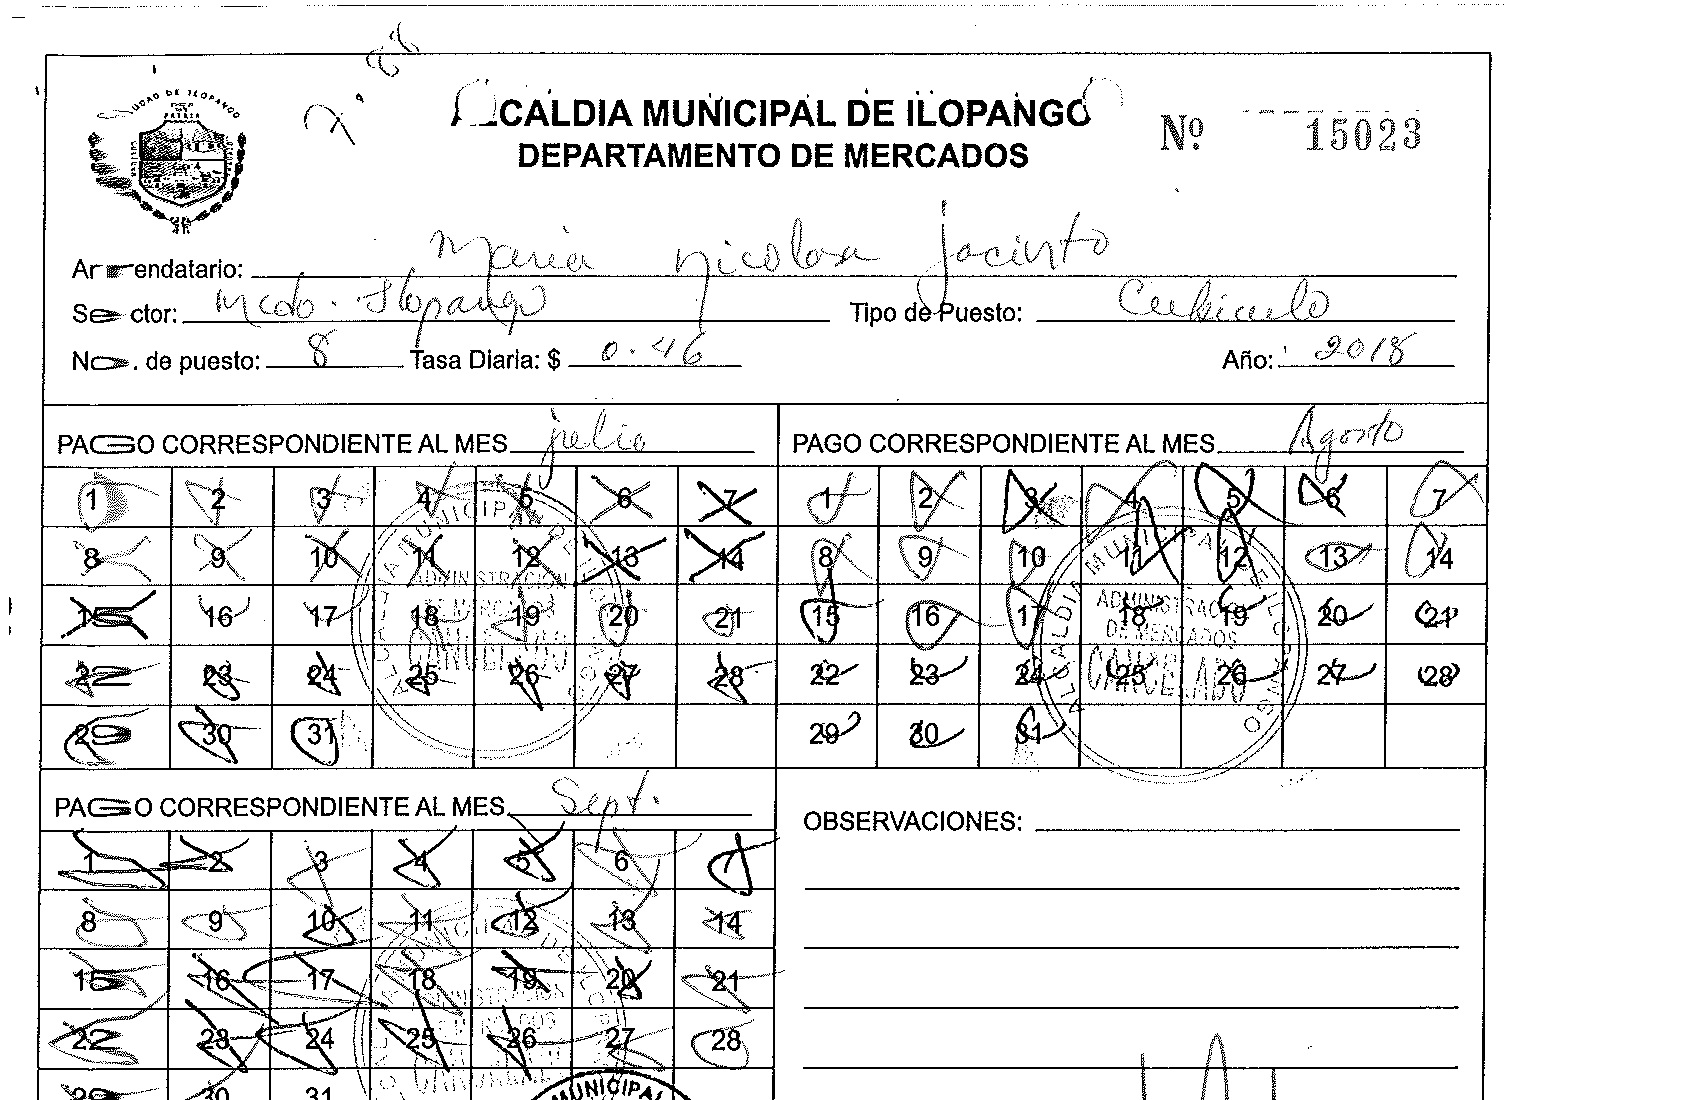 CIUDAD DE ILOPANGO
ALCALDIA MUNICIPAL DE ILOPANGO
Nº 15023
DEPARTAMENTO DE MERCADOS
Arrendatario: Maria Nicolasa Jacinto
Sector: Mcdo. Ilopango Tipo de Puesto: Cubiculo
No. de puesto: 8 Tasa Diaria: $ 0.46 Año: 2018
PAGO CORRESPONDIENTE AL MES julio
1 2 3 4 5 6 7
8 9 10 11 12 13 14
15 16 17 18 19 20 21
22 23 24 25 26 27 28
29 30 31
ALCALDIA MUNICIPAL DE ILOPANGO
ADMINISTRACION
DE MERCADOS
CANCELADO
PAGO CORRESPONDIENTE AL MES Agosto
1 2 3 4 5 6 7
8 9 10 11 12 13 14
15 16 17 18 19 20 21
22 23 24 25 26 27 28
29 30 31
ALCALDIA MUNICIPAL DE ILOPANGO
ADMINISTRACION
DE MERCADOS
CANCELADO
PAGO CORRESPONDIENTE AL MES Sept.
1 2 3 4 5 6 7
8 9 10 11 12 13 14
15 16 17 18 19 20 21
22 23 24 25 26 27 28
29 30 31
MUNICIPAL
OBSERVACIONES: